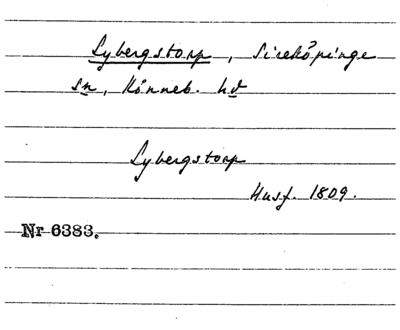 Lybergstorp, Sireköpinge
sn, Rönneb. hd
Lybergstorp
Husf. 1809.
Nr 6383.